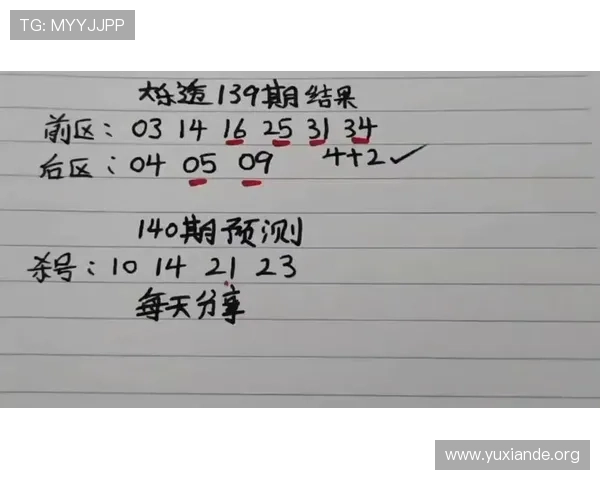 TG: MYYJJPP
大乐透139期结果
前区: 03 14 16 25 31 34
后区: 04 05 09 4+2✓
140期预测
杀号: 10 14 21 23
每天分享
www.yuxiande.org